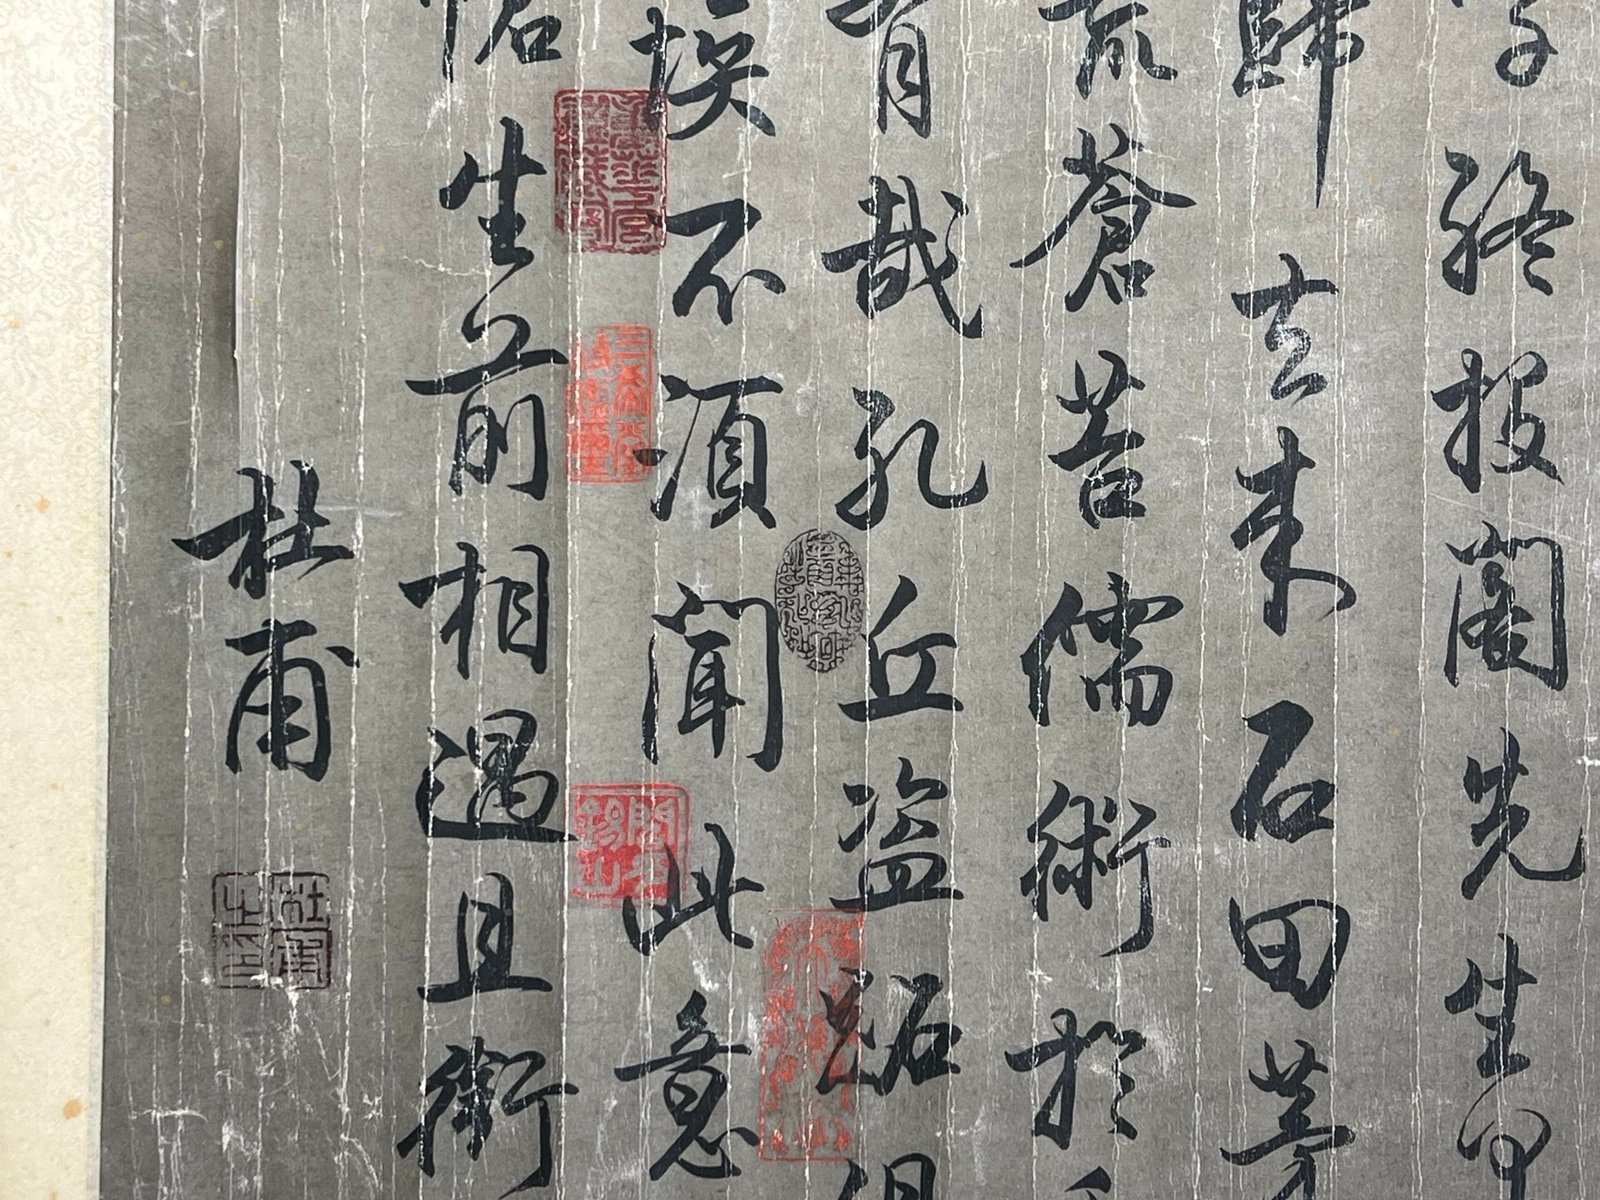 字終投閣先生早
歸去來石田茅
荒蒼苔儒術於
有哉孔丘盜跖俱
埃不須聞此意
愴生前相遇且銜
杜甫
杜甫之印